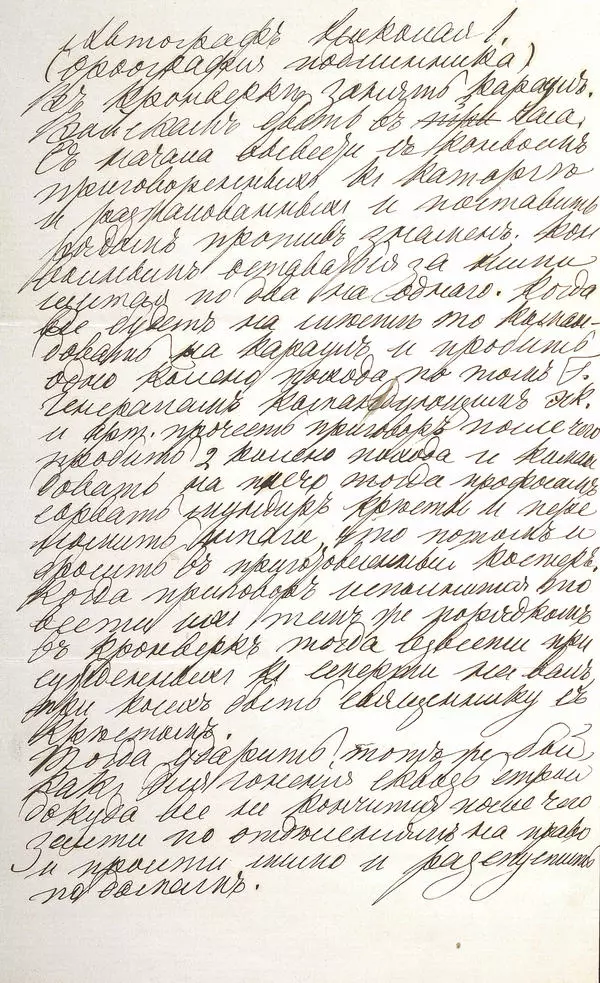 Автографъ Николая I.
(Орѳографія подлинника)
Въ кронверкѣ занять караулъ.
Войскамъ быть въ три часа.
Съ начала вывести съ конвоемъ
приговоренныхъ къ каторгѣ
и разжалованныхъ и поставить
рядомъ противъ знаменъ. Кон
войнымъ оставаться за ними
щитая по два на одного. Когда
все будетъ на месте то коман-
довать на караулъ и пробить
одно колено похода потомъ Г.
Генераламъ командующимъ эск.
и арт. прочесть приговоръ после чего
пробить 2 колено похода и коман
довать на плечо тогда профосамъ
сорвать мундиръ кресты и пере
ломить шпаги, что потомъ и
бросить въ приготовленный костеръ.
Когда приговоръ исполнится то
вести ихъ темъ же порядкомъ
въ кронверкъ тогда взвести при
сужденныхъ къ смерти на валъ
при коихъ быть священнику съ
крестомъ.
Тогда ударить тотъ же бой,
какъ для гонения сквозь строй
докуда все не кончится после чего
зайти по отделениямъ на право
и пройти мимо и распустить
по домамъ.